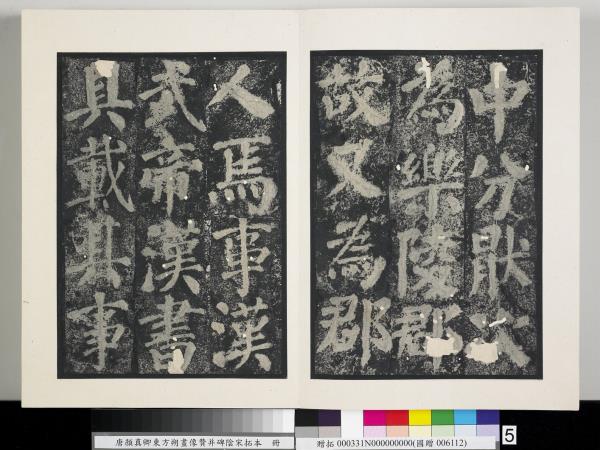 中分猒次
為樂陵郡
故又為郡
人焉事漢
武帝漢書
具載其事
唐顏真卿東方朔畫像贊并碑陰宋拓本 冊
贈拓 000331N000000000(國贈 006112)
5